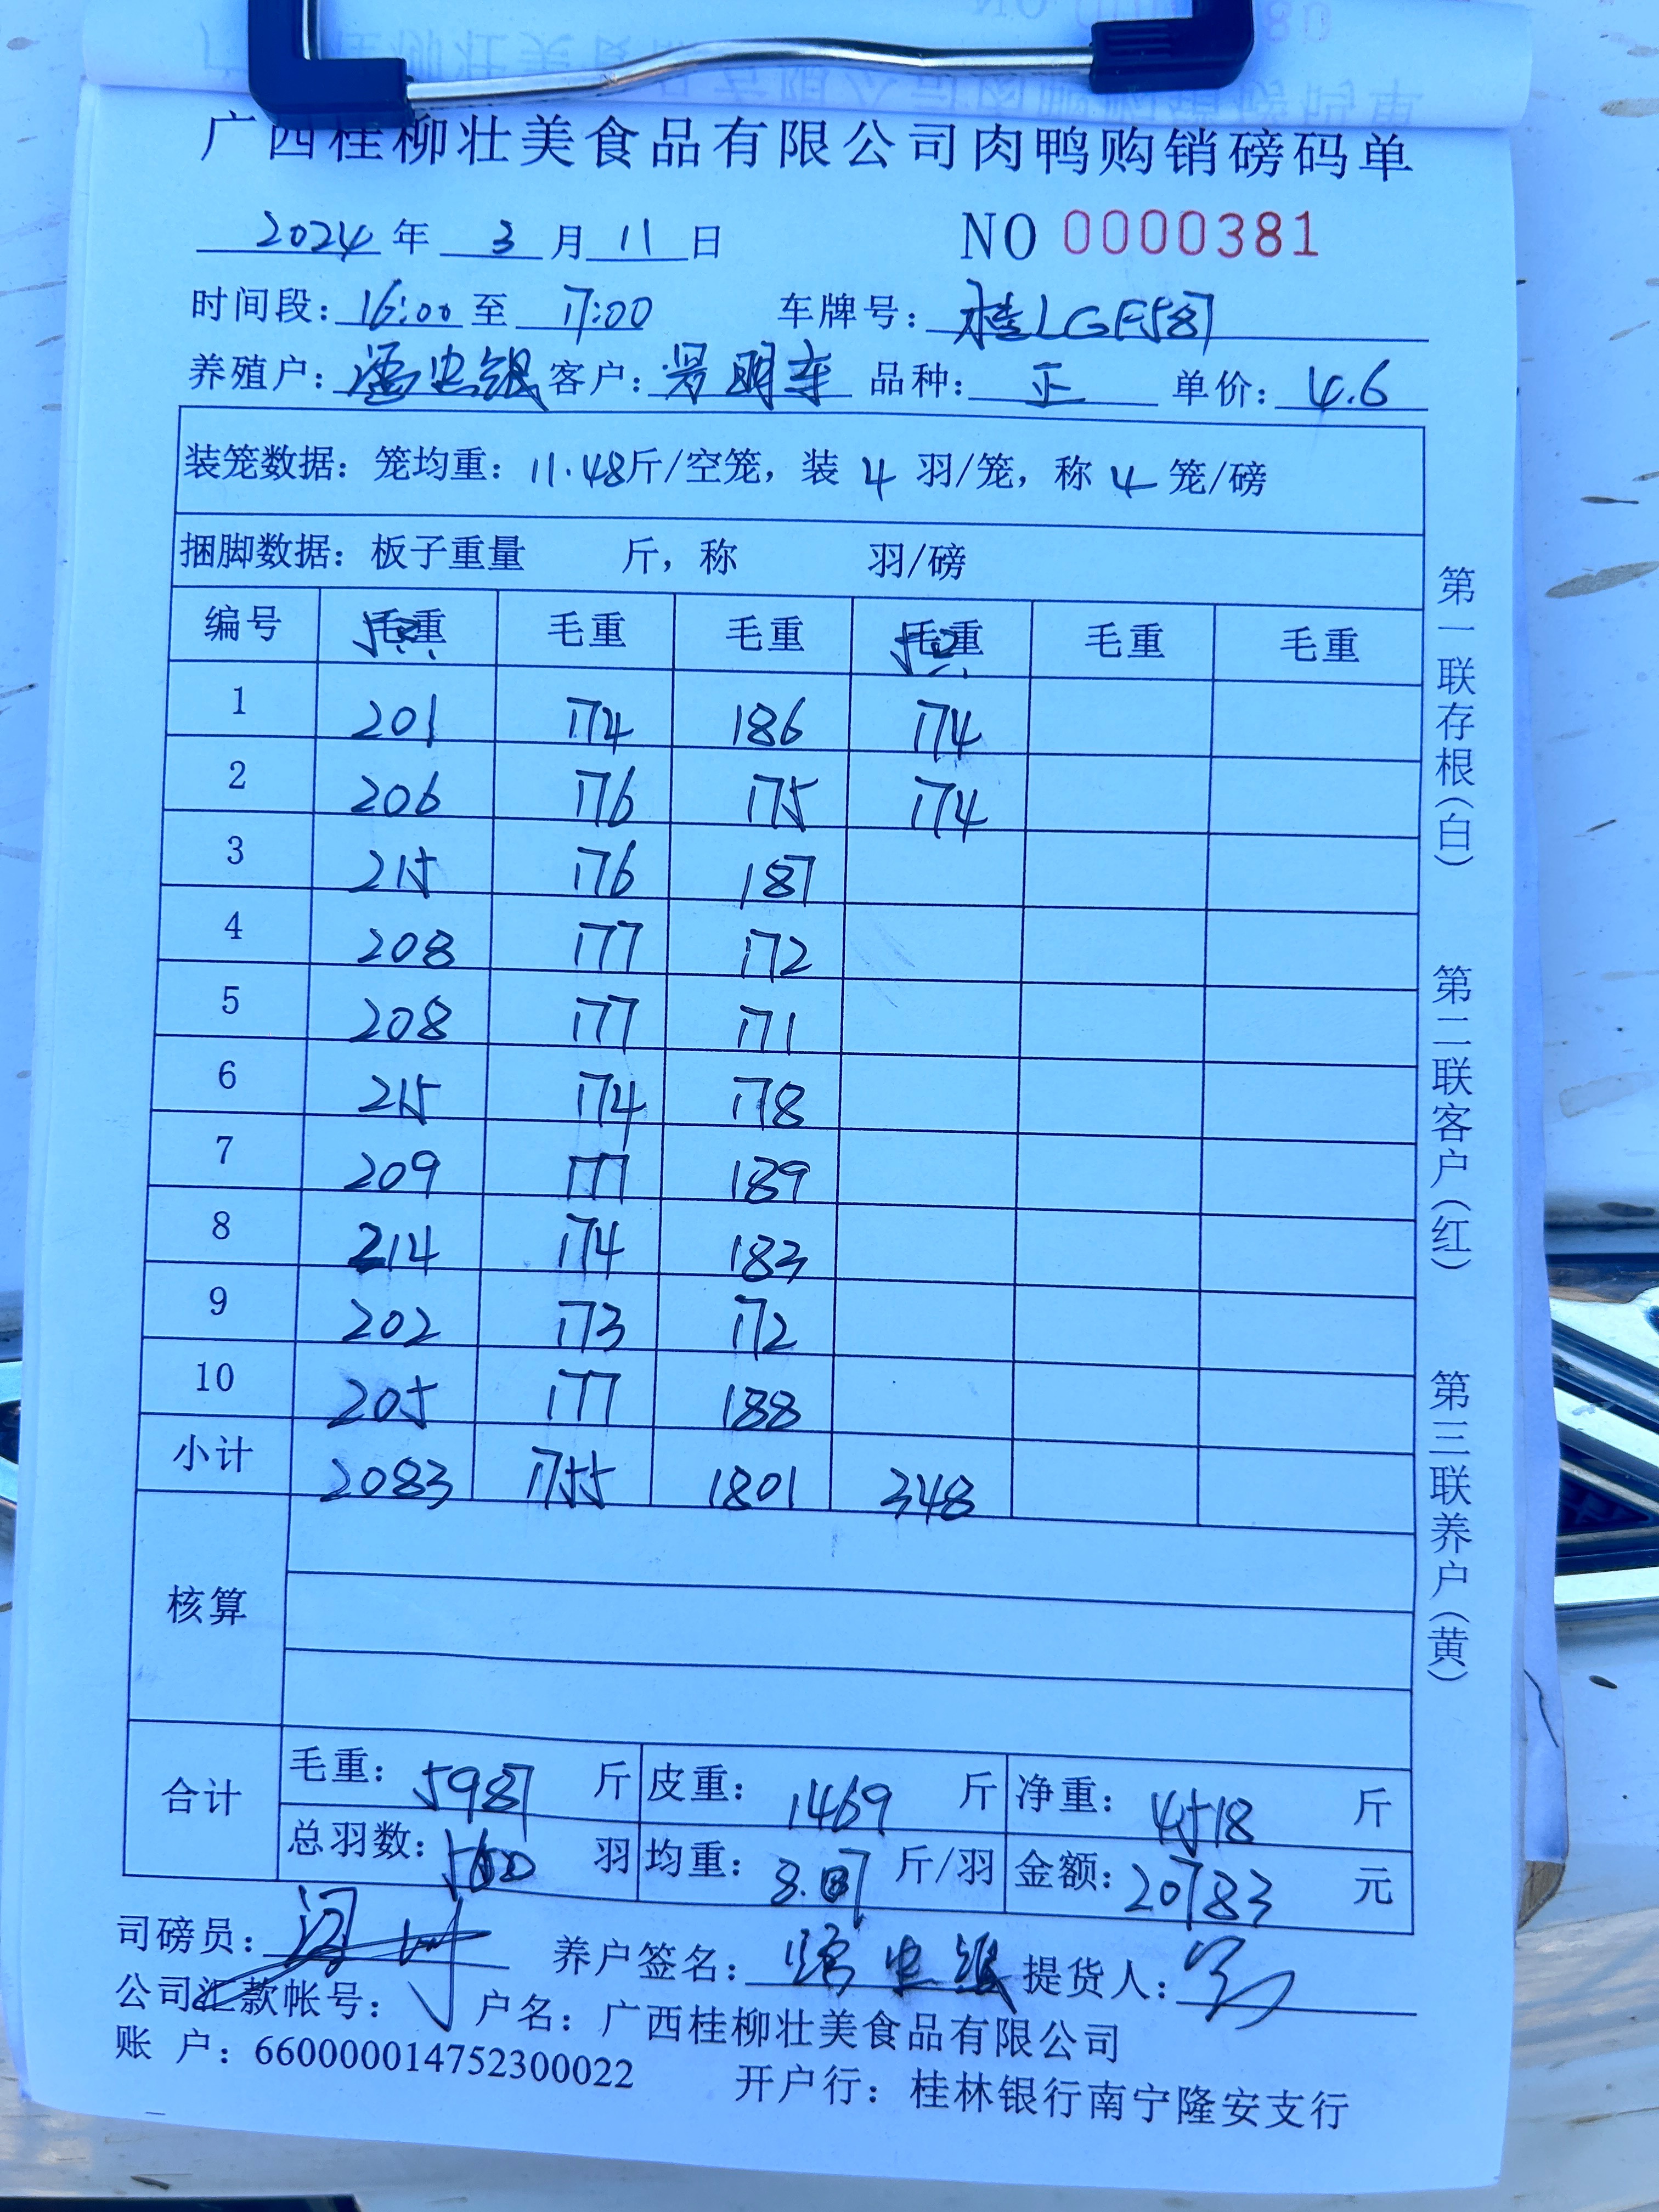 广西桂柳壮美食品有限公司肉鸭购销磅码单
2024 年 3 月 11 日 NO 0000381
时间段: 16:00 至 17:00 车牌号: 桂LGF587
养殖户: 客户: 明车 品种: 正 单价: 4.6
装笼数据: 笼均重: 11.48斤/空笼, 装 4 羽/笼, 称 4 笼/磅
捆脚数据: 板子重量 斤, 称 羽/磅
编号 毛重 毛重 毛重 毛重 毛重 毛重
5只 5只
1 201 174 186 174
2 206 176 175 174
3 215 176 187
4 208 177 172
5 208 177 171
6 215 174 178
7 209 177 189
8 214 174 183
9 202 173 172
10 205 177 188
小计 2083 1755 1801 348
核算
合计 毛重: 5987 斤 皮重: 1469 斤 净重: 4518 斤
总羽数: 560 羽 均重: 8.07 斤/羽 金额: 20783 元
司磅员: 养户签名: 提货人:
公司汇款帐号: 户名: 广西桂柳壮美食品有限公司
账 户: 660000014752300022 开户行: 桂林银行南宁隆安支行
第一联存根(白) 第二联客户(红) 第三联养户(黄)